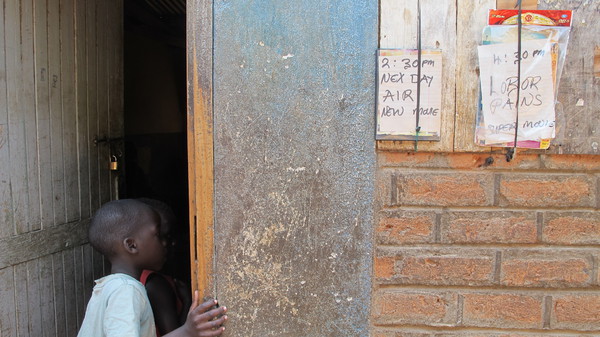 2:30PM
NEXDAY
AIR
NEW MOVIE
4:30PM
LOBOR
PAINS
SUPER MOVIE